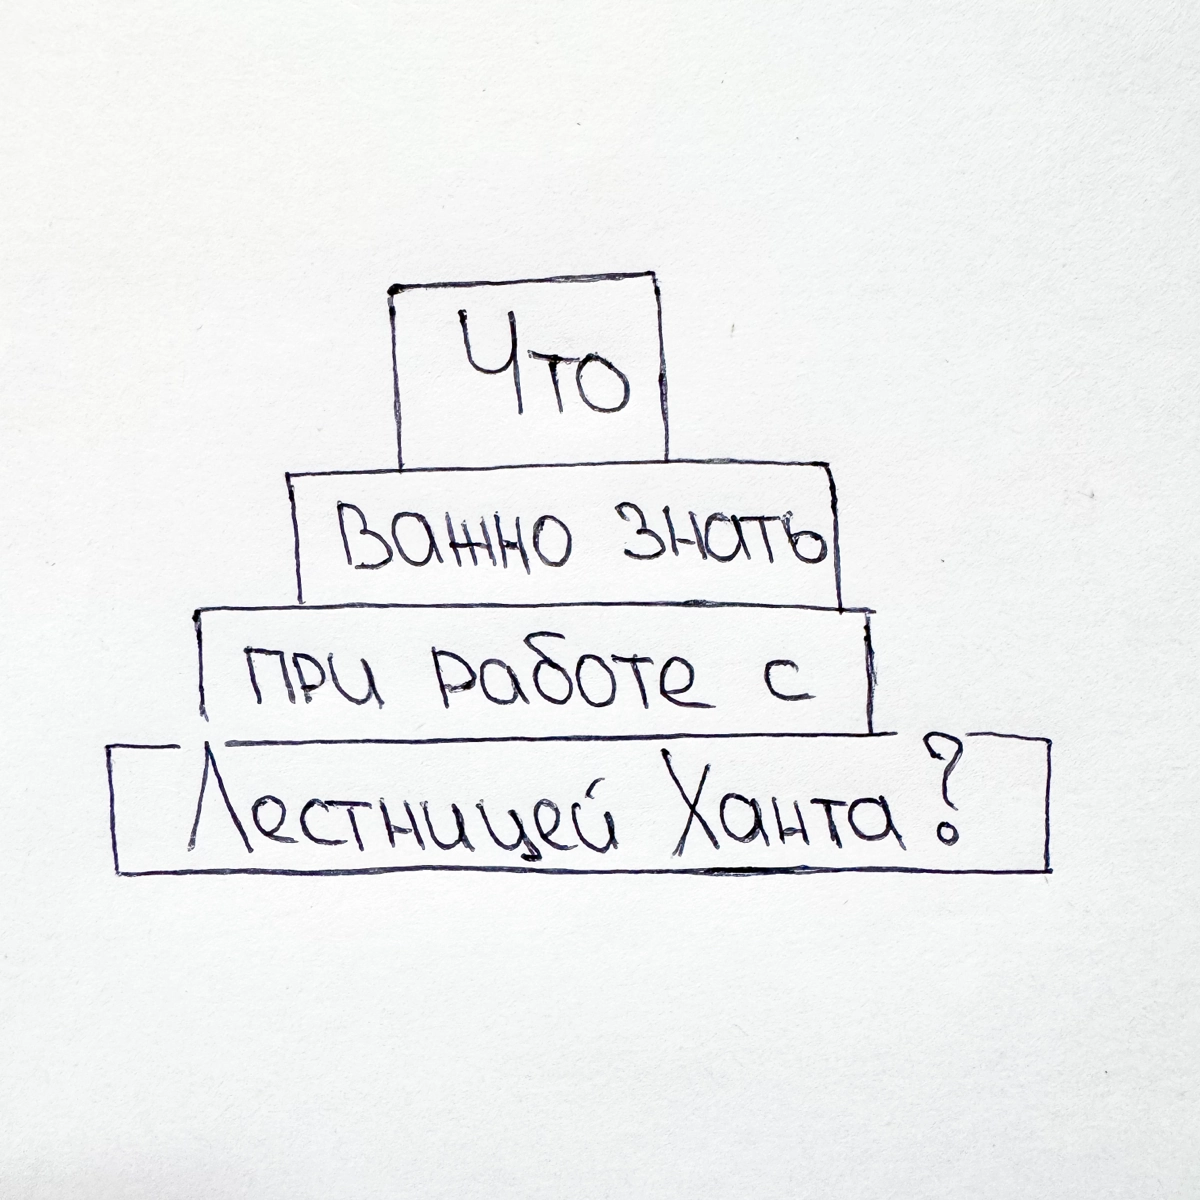 Что
важно знать
при работе с
Лестницей Ханта?